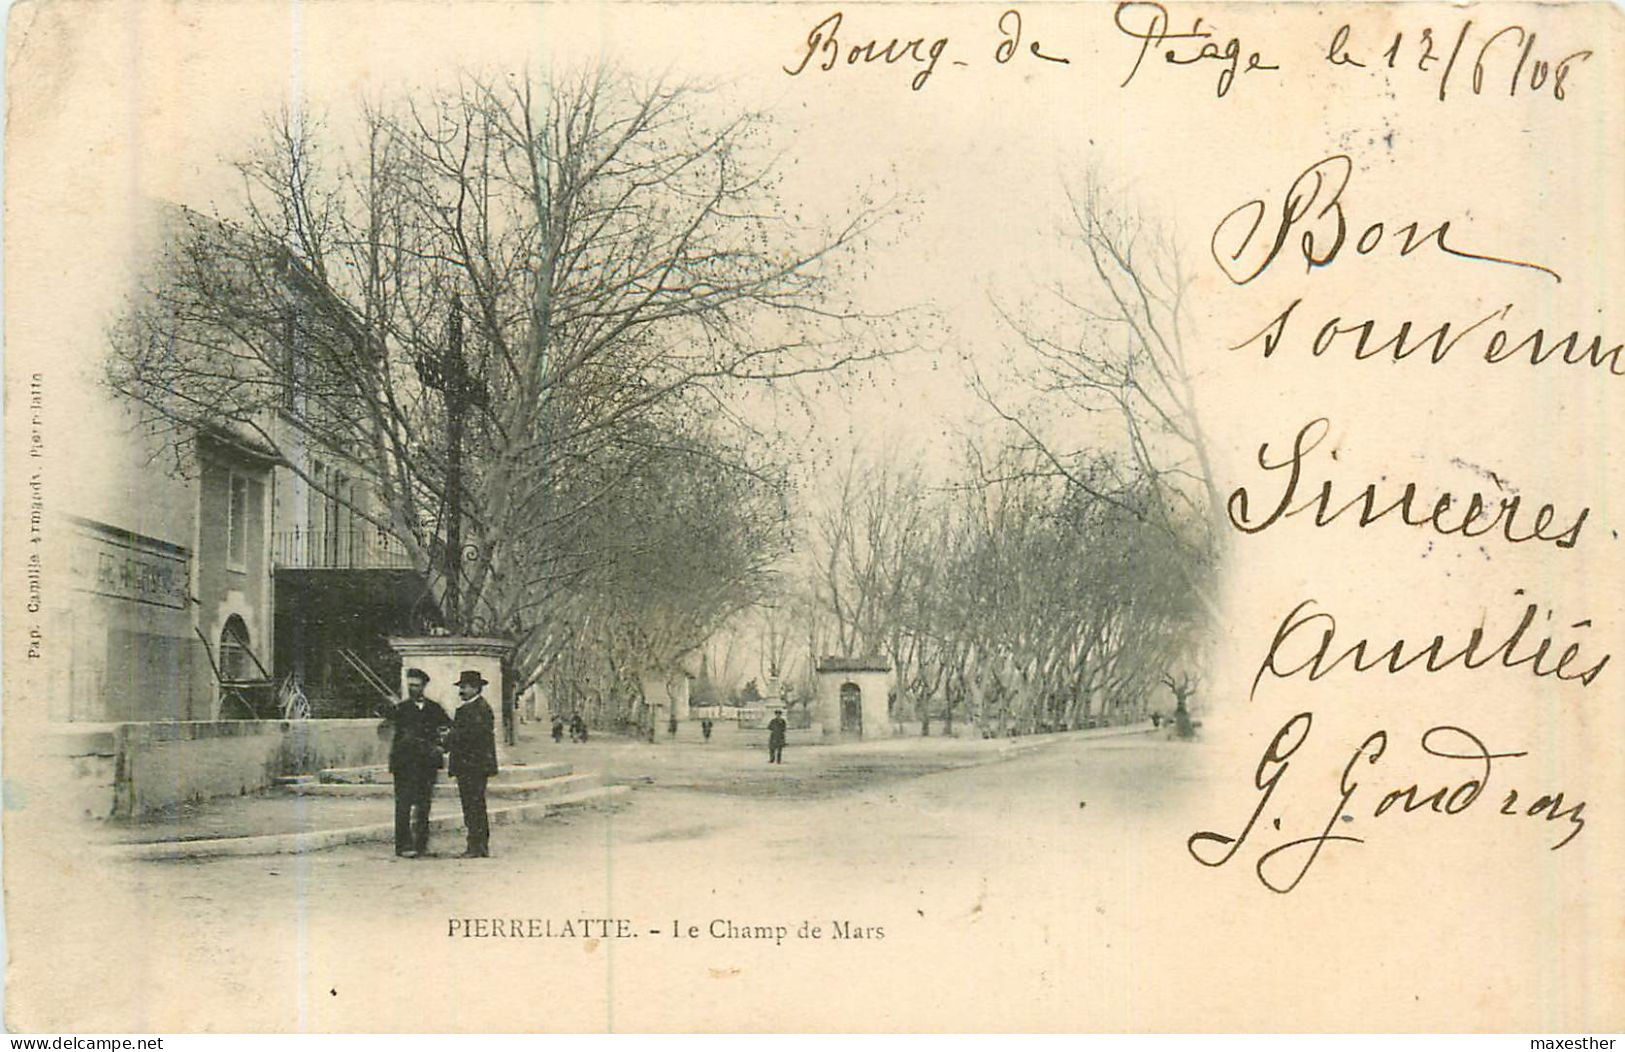 Bourg-de Péage le 17/6/06
Bon
souvenir
Sincères
Amitiés
G. Goudron
Pap. Camille Armgods. Pierrelatte
PIERRELATTE. - Le Champ de Mars
delcampe.net
maxesther